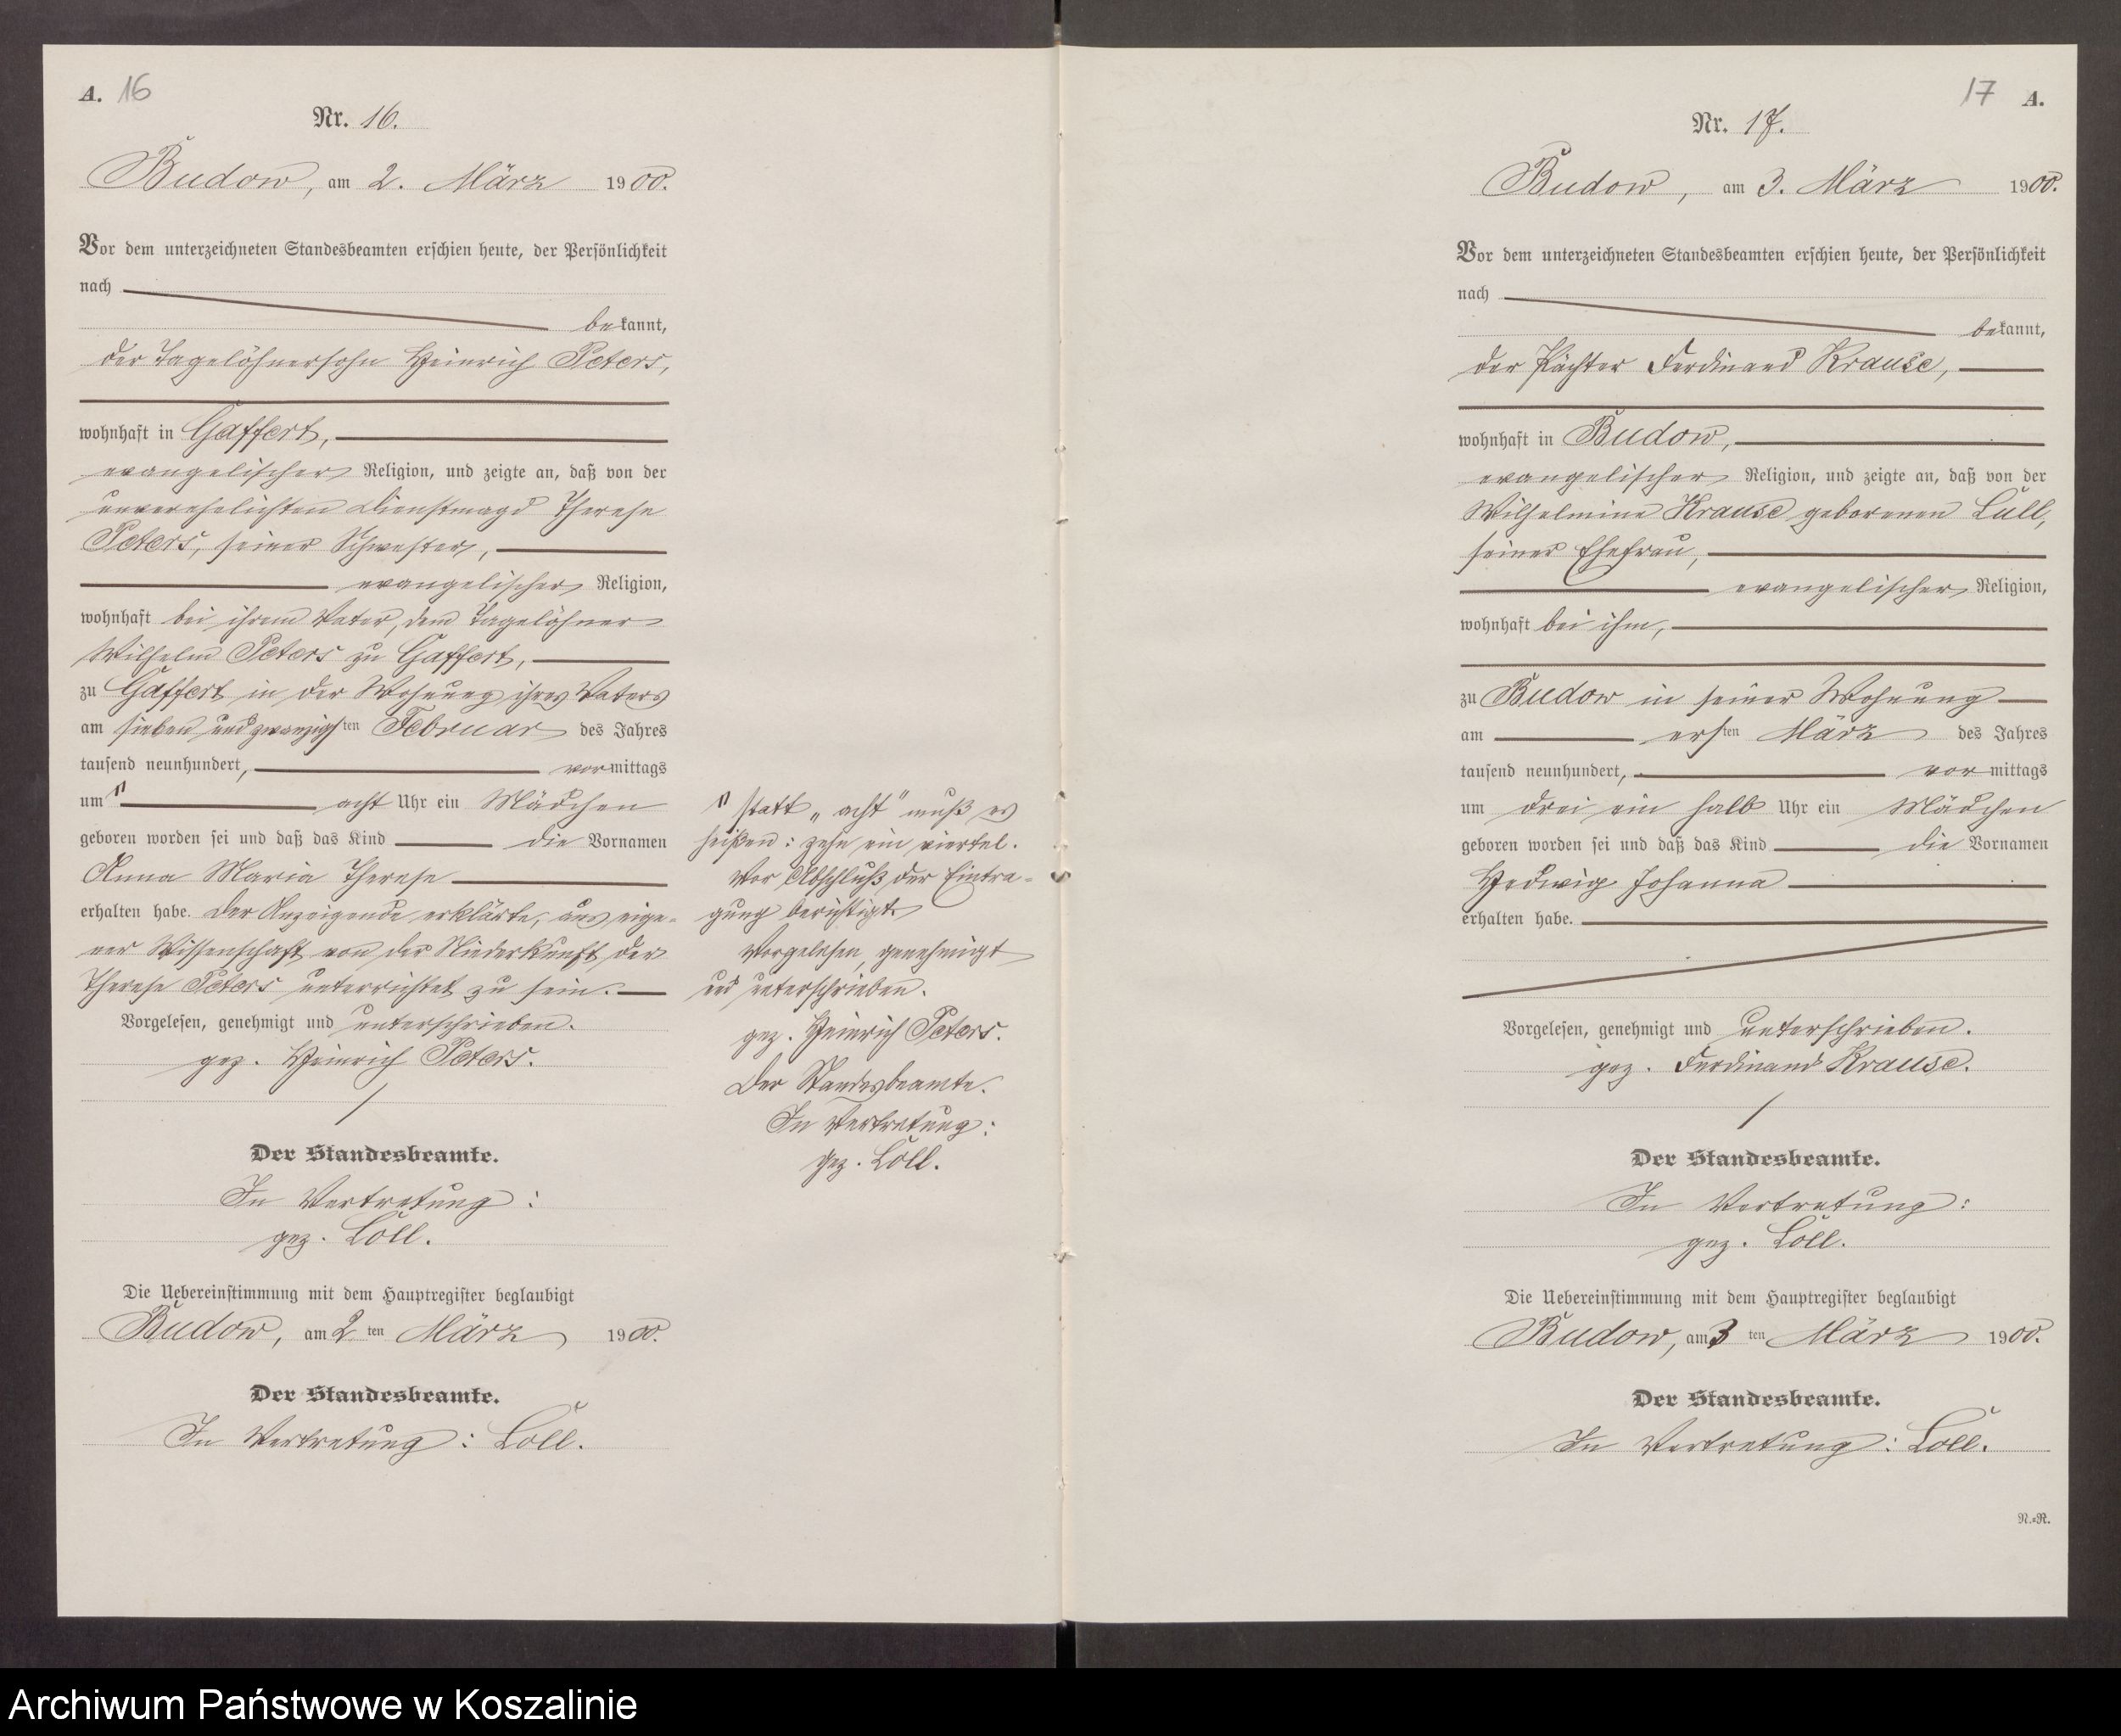 A. 16
Nr. 16.
Budow, am 2. März 1900.
Vor dem unterzeichneten Standesbeamten erschien heute, der Persönlichkeit
nach
bekannt,
der Tagelöhnersohn Heinrich Peters,
wohnhaft in Gaffert,
evangelischer Religion, und zeigte an, daß von der
unverehelichten Dienstmagd Therese
Peters, seiner Schwester,
evangelischer Religion,
wohnhaft bei ihrem Vater, dem Tagelöhner
Wilhelm Peters zu Gaffert,
zu Gaffert in der Wohnung ihres Vaters
am sieben und zwanzigsten Februar des Jahres
tausend neunhundert, vormittags
um 1) acht Uhr ein Mädchen
geboren worden sei und daß das Kind die Vornamen
Anna Maria Therese
erhalten habe. Der Anzeigende erklärte, aus eige-
ner Wissenschaft von der Niederkunft der
Therese Peters unterrichtet zu sein.
Vorgelesen, genehmigt und unterschrieben.
gez. Heinrich Peters.
Der Standesbeamte.
In Vertretung:
gez. Löll.
Die Uebereinstimmung mit dem Hauptregister beglaubigt
Budow, am 2ten März 1900.
Der Standesbeamte.
In Vertretung: Löll.
1) statt „acht" muß es
heißen: zehn ein viertel.
Vor Abschluß der Eintra-
gung berichtigt.
Vorgelesen, genehmigt
und unterschrieben.
gez. Heinrich Peters.
Der Standesbeamte.
In Vertretung:
gez. Löll.
17 A.
Nr. 17.
Budow, am 3. März 1900.
Vor dem unterzeichneten Standesbeamten erschien heute, der Persönlichkeit
nach
bekannt,
der Pächter Ferdinand Krause,
wohnhaft in Budow,
evangelischer Religion, und zeigte an, daß von der
Wilhelmine Krause geborenen Lüll,
seiner Ehefrau,
evangelischer Religion,
wohnhaft bei ihm,
zu Budow in seiner Wohnung
am ersten März des Jahres
tausend neunhundert, vormittags
um drei ein halb Uhr ein Mädchen
geboren worden sei und daß das Kind die Vornamen
Hedwig Johanna
erhalten habe.
Vorgelesen, genehmigt und unterschrieben.
gez. Ferdinand Krause.
Der Standesbeamte.
In Vertretung:
gez. Löll.
Die Uebereinstimmung mit dem Hauptregister beglaubigt
Budow, am 3ten März 1900.
Der Standesbeamte.
In Vertretung: Löll.
N.=R.
Archiwum Państwowe w Koszalinie